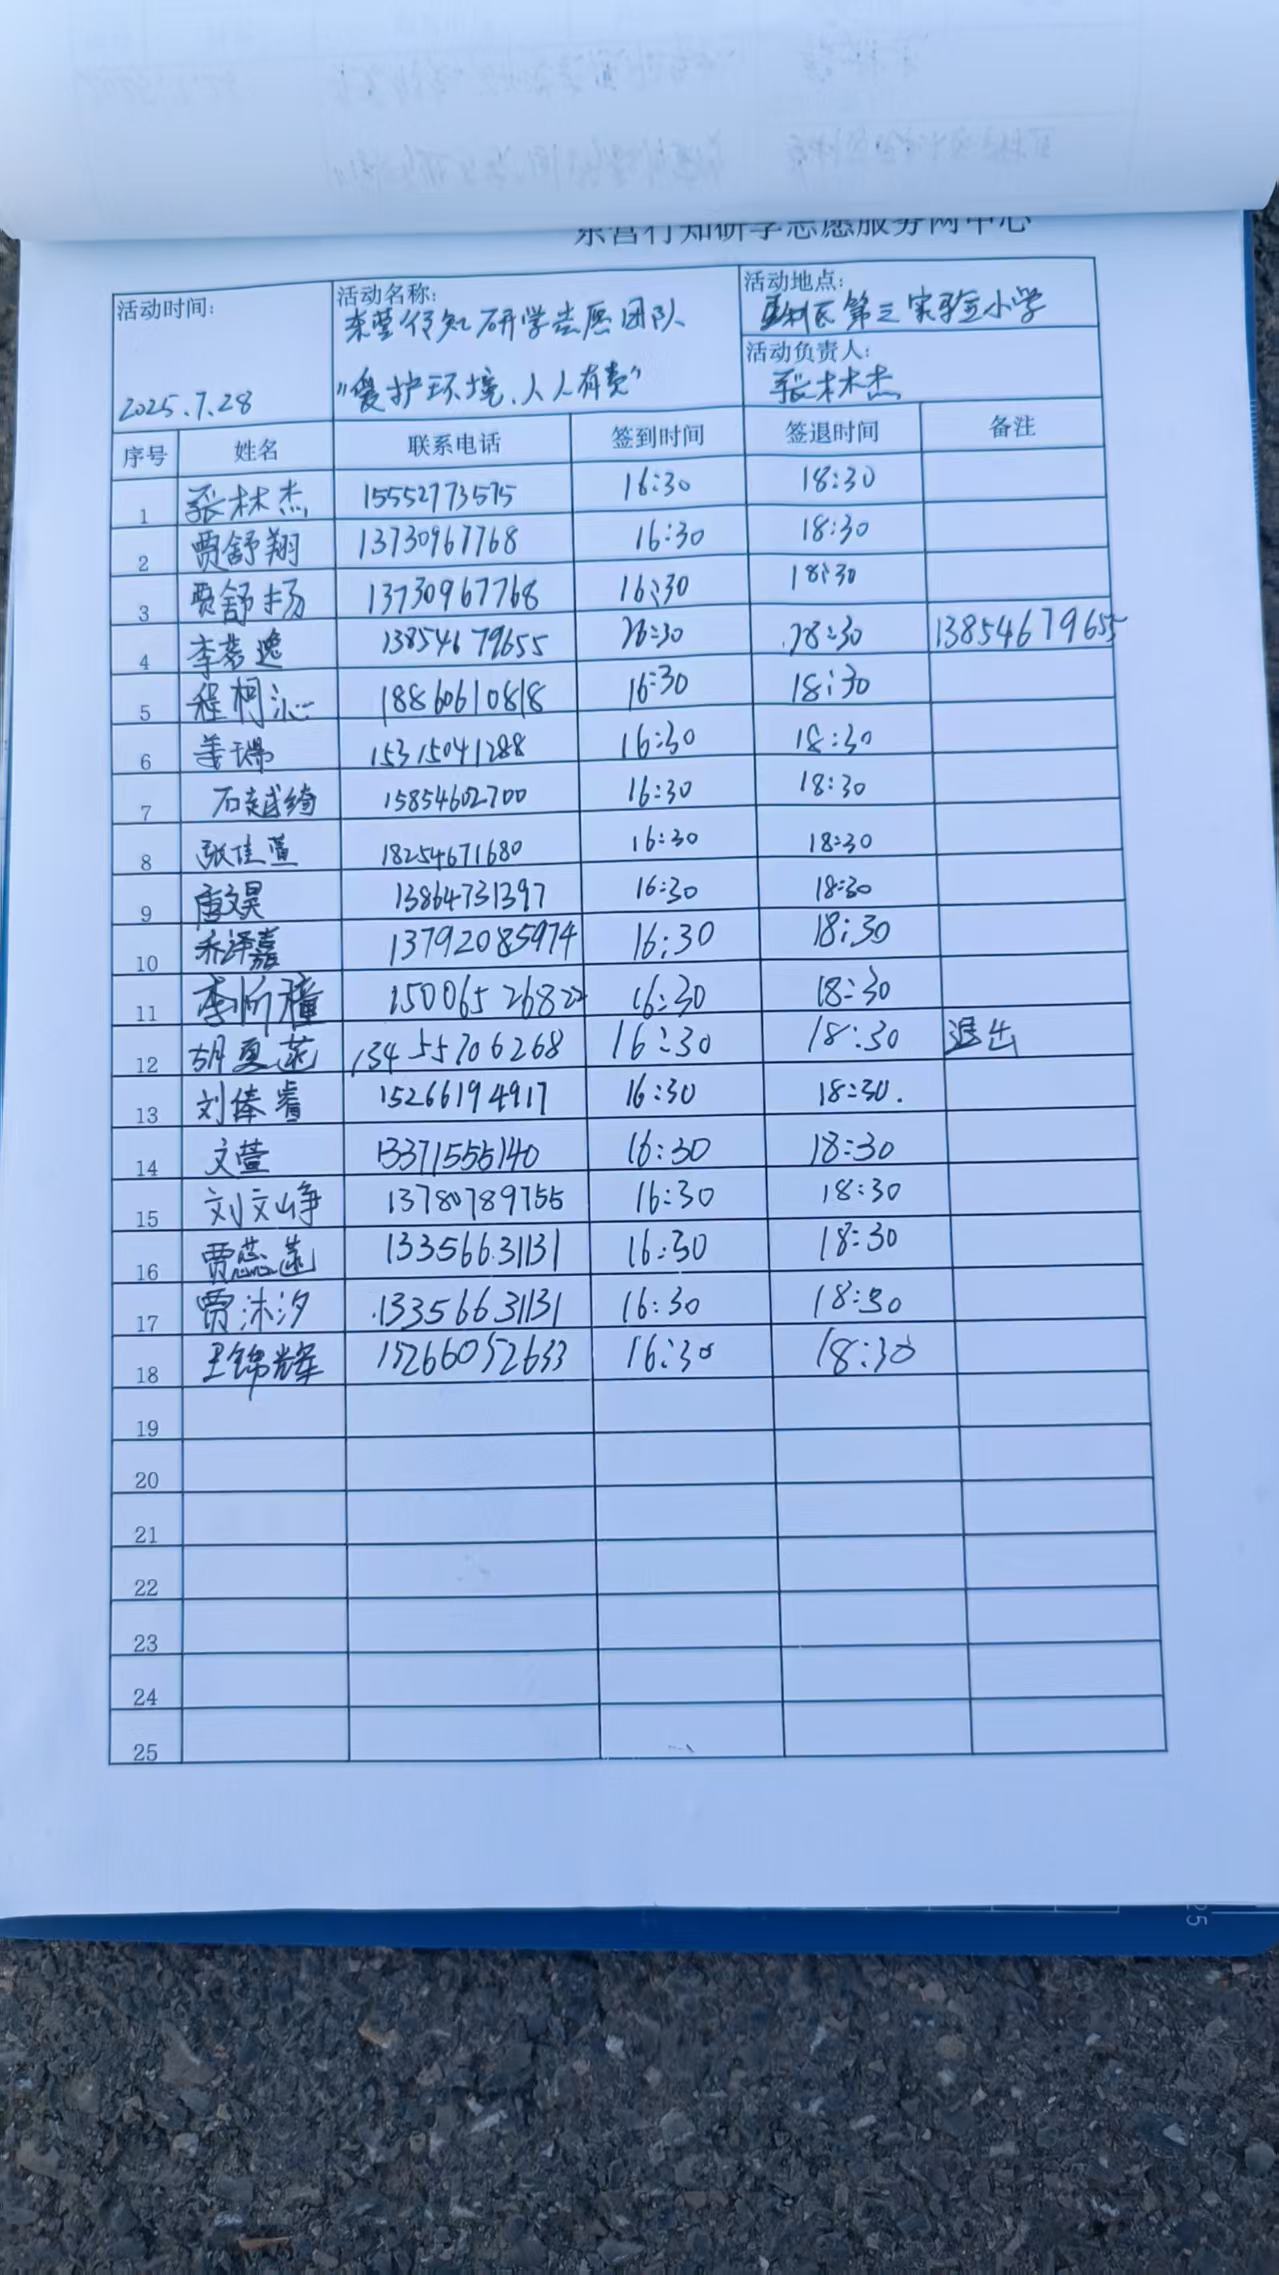 东营行知研学志愿服务网中心
活动时间:
2025.7.28
活动名称:
东营行知研学志愿团队
"爱护环境、人人有责"
活动地点:
垦利区第三实验小学
活动负责人:
张林杰
序号 姓名 联系电话 签到时间 签退时间 备注
1 张林杰 15552773575 16:30 18:30
2 贾舒翔 13730967768 16:30 18:30
3 贾舒扬 13730967768 16:30 18:30
4 李梦逸 13854679655 16:30 18:30 13854679655
5 程柯沁 18860610818 16:30 18:30
6 姜瑞 15315041288 16:30 18:30
7 石越绮 15854602700 16:30 18:30
8 张佳萱 18254671680 16:30 18:30
9 唐文昊 13864731397 16:30 18:30
10 乔泽嘉 13792085974 16:30 18:30
11 李昕穜 15006526822 16:30 18:30
12 胡夏菡 13455706268 16:30 18:30 退出
13 刘俸睿 15266194917 16:30 18:30.
14 文萱 13371555140 16:30 18:30
15 刘文峥 13780789755 16:30 18:30
16 贾蕊菡 13356631131 16:30 18:30
17 贾沐汐 13356631131 16:30 18:30
18 王锦辉 15266052633 16:30 18:30
19
20
21
22
23
24
25
25